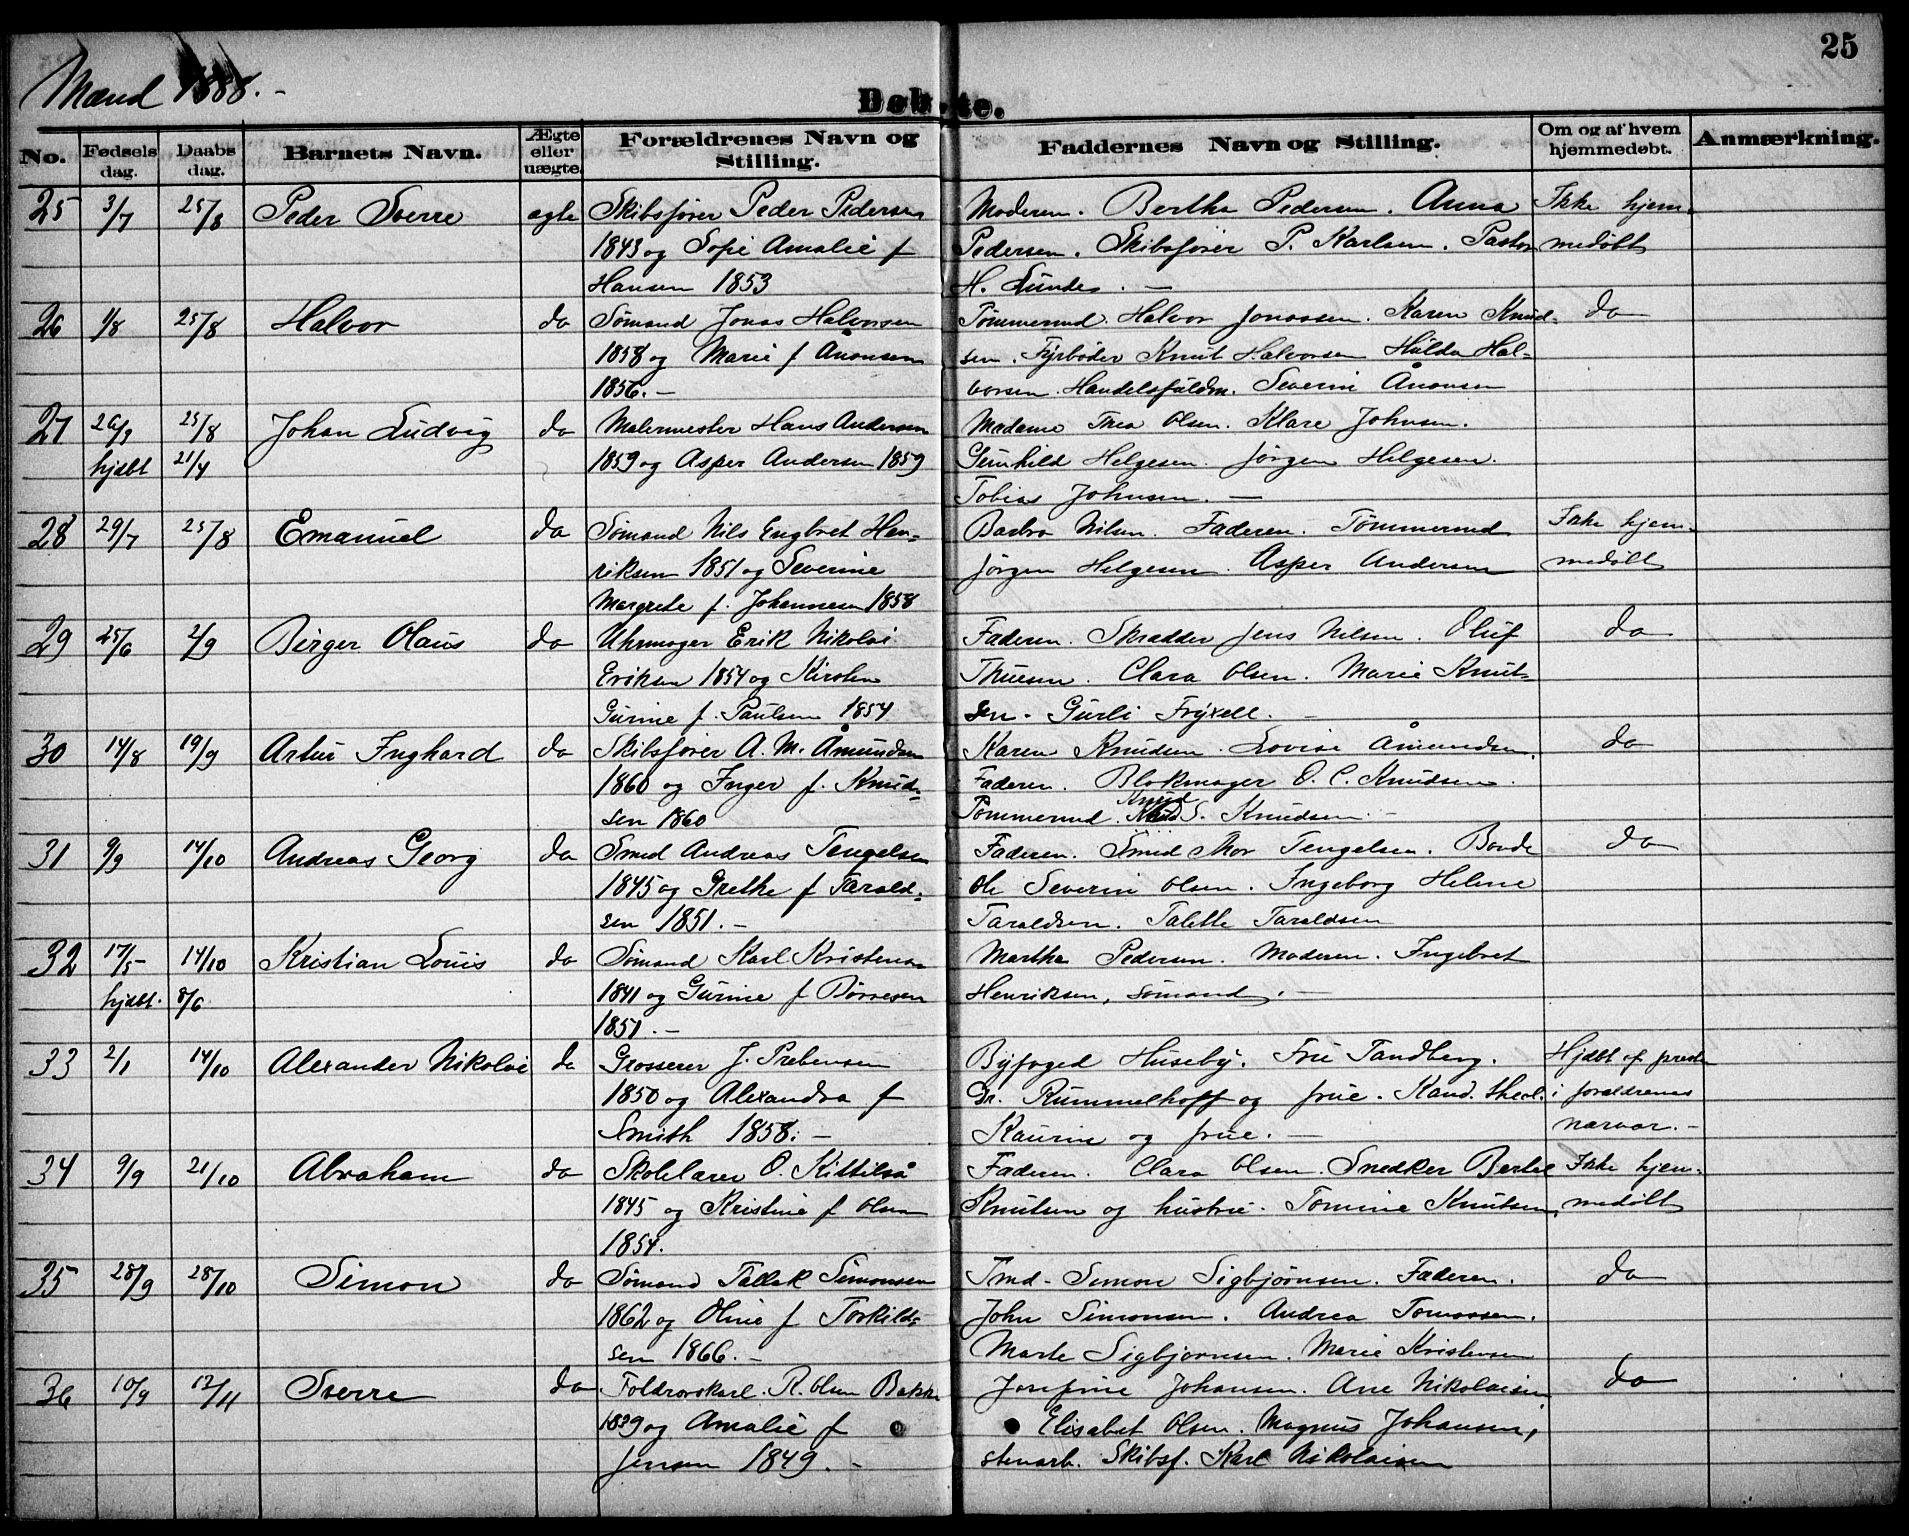 25
Mænd 1888.-
Døbte.
No. Fødsels dag. Daabs dag. Barnets Navn. Ægte eller uægte. Forældrenes Navn og Stilling. Faddernes Navn og Stilling. Om og af hvem hjemmedøbt. Anmærkning.
25 3/7 25/8 Peder Sverre egte Skibsfører Peder Pedersen Moderen. Bertha Pedersen. Anna Ikke hjem-
1843 og Sofie Amalie f Pedersen. Skibsfører P. Karlsen. Pastor medøbt
Hansen 1853 H. Lunde. -
26 1/8 25/8 Halvor do Sømand Jonas Halvorsen Tømmermd. Halvor Jonassen. Karen Knud- do
1858 og Marie f Ånonsen sen. Fyrbøder Knut Halvorsen Hulda Hal-
1856.- vorsen. Handelsfuldm. Severin Ånonsen
27 26/3 25/8 Johan Ludvig do Malermester Hans Andersen Madame Thea Olsen. Klare Johnsen.
hjdbt 21/4 1859 og Asper Andersen 1859 Gunhild Helgesen. Jørgen Helgesen.
Tobias Johnsen. -
28 29/7 25/8 Emanuel do Sømand Nils Engbret Hen- Barbro Nilsen. Faderen. Tømmermd Ikke hjem-
riksen 1851 og Severine Jørgen Helgesen. Asper Andersen medøbt
Margrete f. Johannesen 1858
29 25/6 2/9 Birger Olaus do Uhrmager Erik Nikolai Faderen. Skradder Jens Nilsen. Oluf do
Eriksen 1854 og Kirsten Thuesen. Clara Olsen. Marie Knut-
Gurine f. Paulsen 1854 sen. Gurli Fryxell. -
30 14/8 19/9 Artur Inghard do Skibsfører A. M. Åmundsen Karen Knudsen. Lovise Åmundsen. do
1860 og Inger f. Knud- Faderen. Blokmager O. C. Knudsen.
sen 1860 Tømmermd. Knud S. Knudsen. -
31 9/9 14/10 Andreas Georg do Smed Andreas Tengelsen Faderen. Smed Mor Tengelsen. Bonde do
1845 og Grethe f Tarald- Ole Severin Olsen. Ingeborg Helene
sen 1851.- Taraldsen. Talette Taraldsen
32 17/5 14/10 Kristian Louis do Sømand Karl Kristensen Martha Pedersen. Moderen. Ingebret
hjdbt. 8/6 1841 og Gurine f Børresen Henriksen, sømand. -
1851.-
33 2/1 14/10 Alexander Nikolai do Grosserer J. Prebensen Byfoged Huseby. Fru Tandberg. Hjdbt af prest
1850 og Alexandra f Dr. Rummelhoff og frue. Kand. theol. i foraldrenes
Smith 1858.- Kaurin og frue. - narvar.-
34 9/9 21/10 Abraham do Skolelarer O. Kittilså Faderen. Clara Olsen. Snedker Bertel Ikke hjem-
1845 og Kristine f Olsen Knutsen og hustru. Tomine Knutsen, medøbt
1854.
35 28/9 28/10 Simon do Sømand Tallak Simonsen Tmd. Simon Sigbjørnsen. Faderen. do
1862 og Oline f Torkild- John Simonsen. Andrea Tomassen.
sen 1866.- Marte Sigbjørnsen. Marie Kristensen
36 10/9 12/11 Sverre do Toldrorskarl. R. Olsen Bakke Josefine Johansen. Ane Nikolaisen do
1839 og Amalie f Elisabet Olsen. Magnus Johansen,
Jensen 1849.- stenarb. Skibsf. Karl Nikolaisen